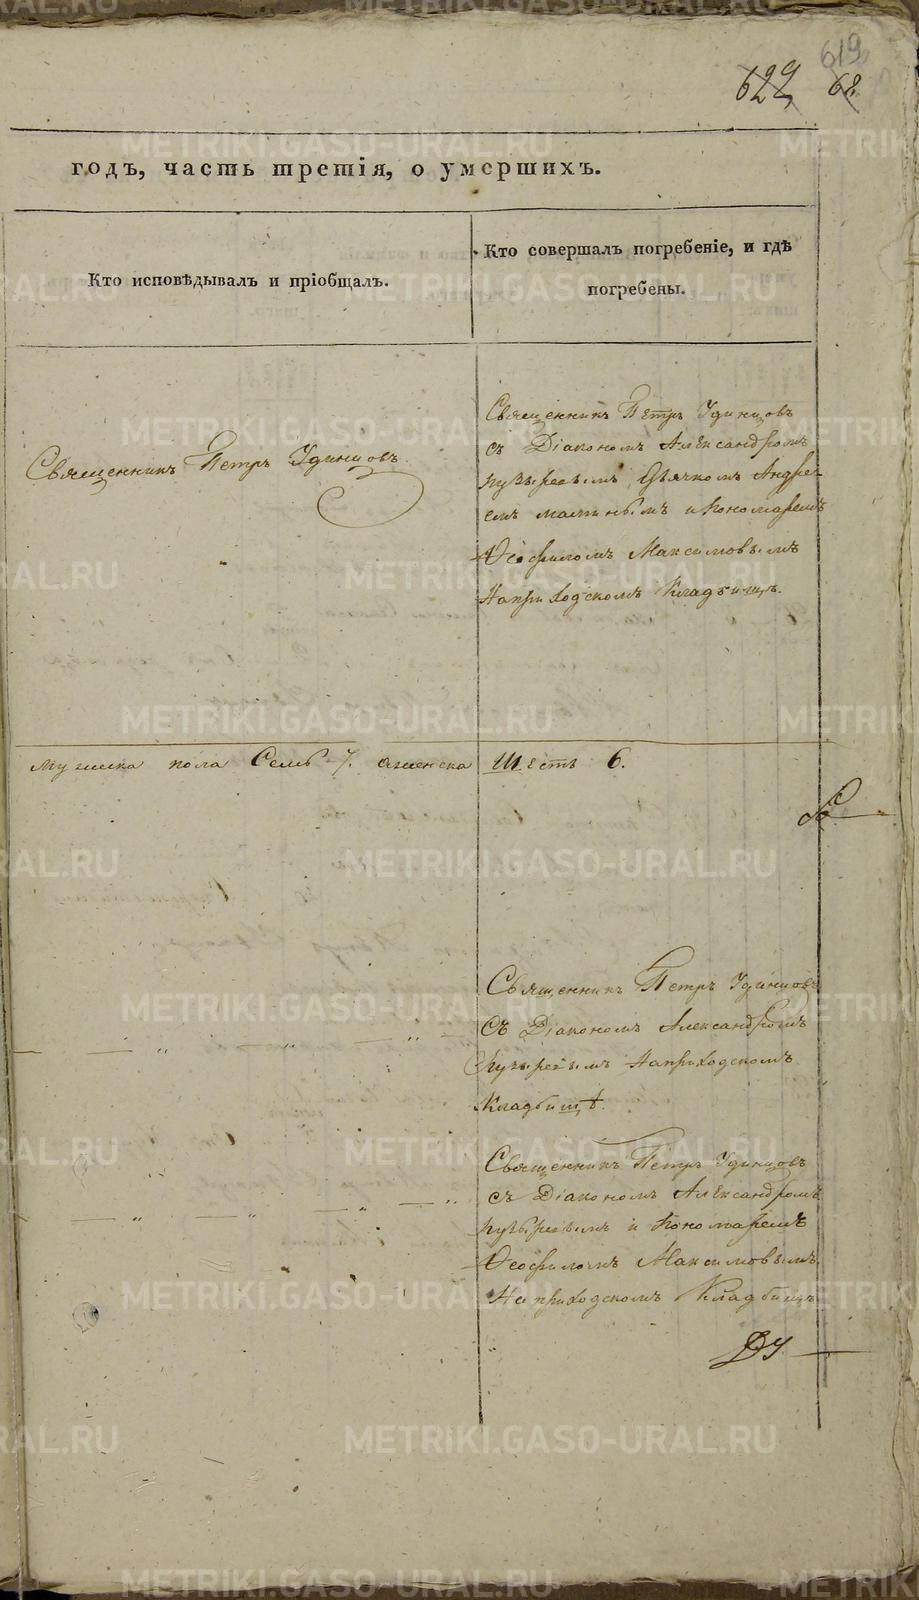 619
629 68
годъ, часть третія, о умершихъ.
Кто исповѣдывалъ и пріобщалъ.
Кто совершалъ погребеніе, и гдѣ
погребены.
Священникъ Петръ Удинцовъ
Священникъ Петръ Удинцовъ
съ Діакономъ Александромъ
Пузыревымъ Дьячкомъ Андре
емъ и Пономаремъ
Ѳеофиломъ Максимовымъ
На приходскомъ Кладбищѣ.
Мужеска пола Семь 7. аженска Шесть 6.
Священникъ Петръ Удинцовъ
Съ Діакономъ Александромъ
Пузыревымъ На приходскомъ
Кладбищѣ.
Священникъ Петръ Удинцовъ
съ Діакономъ Александромъ
Пузыревымъ и Пономаремъ
Ѳеофиломъ Максимовымъ
На приходскомъ Кладбищѣ
METRIKI.GASO-URAL.RU